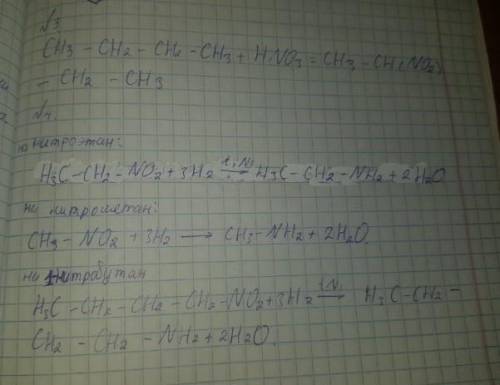 №3
CH3 – CH2 – CH2 – CH3 + HNO3 = CH3 – CH(NO2)
– CH2 – CH3
нитроэтан:
H3C – CH2 – NO2 + 3H2 →(t, Ni) H3C – CH2 – NH2 + 2H2O
нитрометан:
CH3 – NO2 + 3H2 → CH3 – NH2 + 2H2O.
1-нитробутан
H3C – CH2 – CH2 – CH2 – NO2 + 3H2 →(t, Ni) H3C – CH2 –
CH2 – CH2 – NH2 + 2H2O.